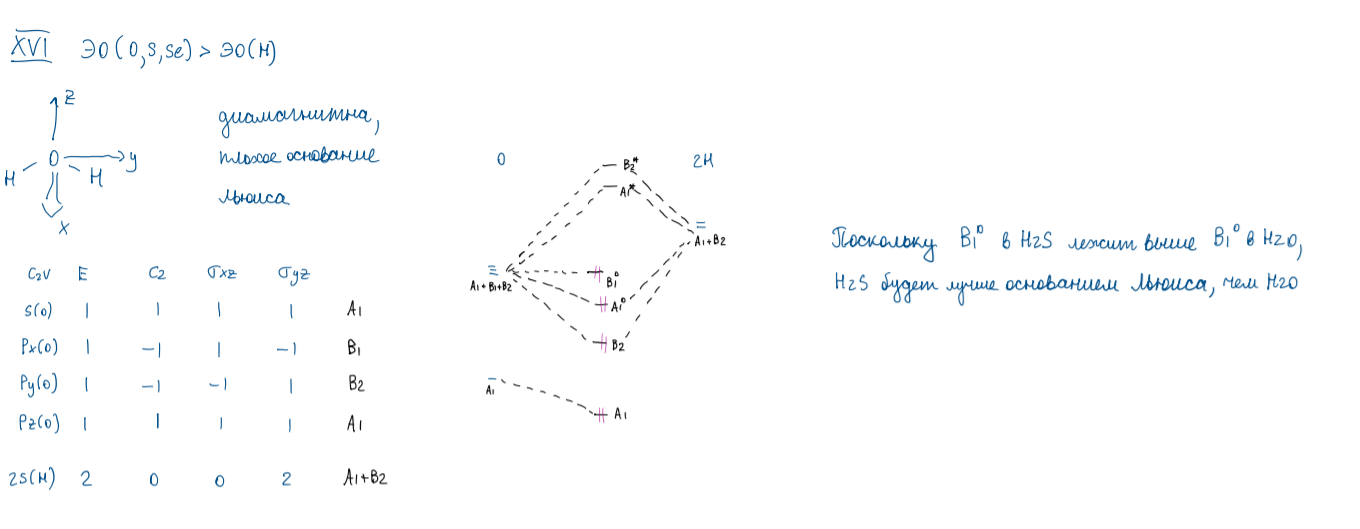 XVI ЭО(O,S,Se) > ЭО(H)
z
O y
H H
x
диамагнитна,
плохое основание
Льюиса
C2V E C2 σxz σyz
S(O) 1 1 1 1 A1
Px(O) 1 -1 1 -1 B1
Py(O) 1 -1 -1 1 B2
Pz(O) 1 1 1 1 A1
2S(H) 2 0 0 2 A1+B2
O 2H
B2*
A1*
A1+B2
A1+B1+B2
B1⁰
A1⁰
B2
A1
A1
Поскольку B1⁰ в H2S лежит выше B1⁰ в H2O,
H2S будет лучше основанием Льюиса, чем H2O